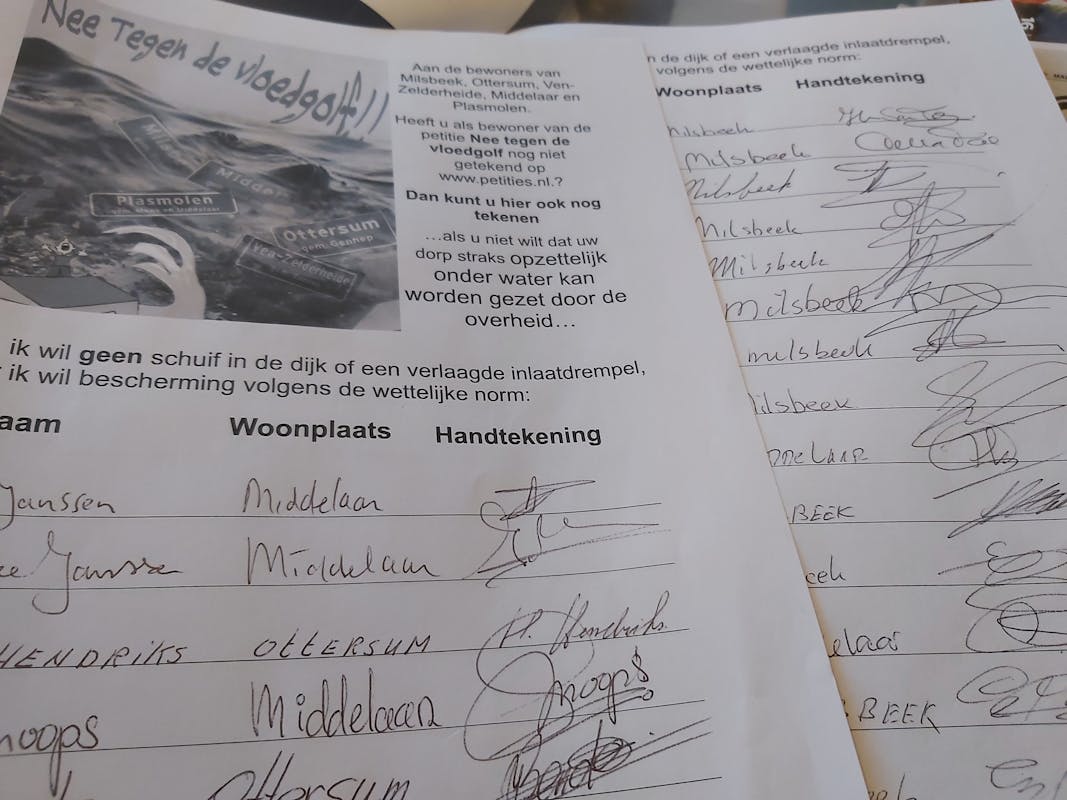 Nee Tegen de vloedgolf!!
Plasmolen
Ottersum
gem. Gennep
Ven-Zelderheide
Aan de bewoners van
Milsbeek, Ottersum, Ven-
Zelderheide, Middelaar en
Plasmolen.
Heeft u als bewoner van de
petitie Nee tegen de
vloedgolf nog niet
getekend op
www.petities.nl.?
Dan kunt u hier ook nog
tekenen
...als u niet wilt dat uw
dorp straks opzettelijk
onder water kan
worden gezet door de
overheid...
ik wil geen schuif in de dijk of een verlaagde inlaatdrempel,
ik wil bescherming volgens de wettelijke norm:
aam Woonplaats Handtekening
Janssen Middelaar
Janssen Middelaar
HENDRIKS OTTERSUM H. Hendriks
noops Middelaar Snoops
Ottersum
n de dijk of een verlaagde inlaatdrempel,
volgens de wettelijke norm:
Woonplaats Handtekening
Milsbeek
Milsbeek
Milsbeek
Milsbeek
Milsbeek
Milsbeek
milsbeek
ilsbeek
DDELAAR
BEEK
eek
elaar
BEEK